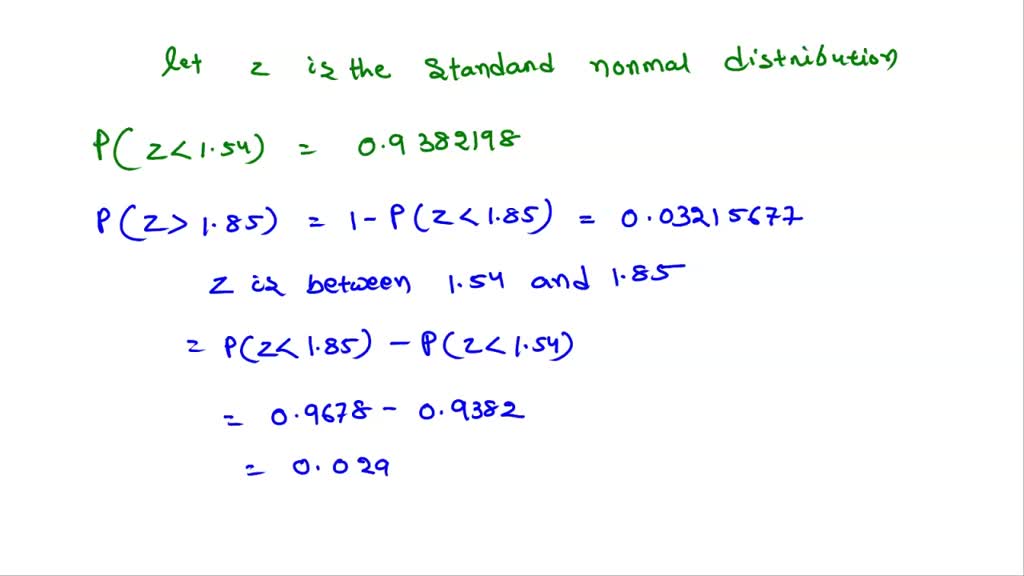 let z is the standand nonmal distnibution
P(z<1.54) = 0.9382198
P(z>1.85) = 1-P(z<1.85) = 0.03215677
z is between 1.54 and 1.85
= P(z<1.85) - P(z<1.54)
= 0.9678 - 0.9382
= 0.029